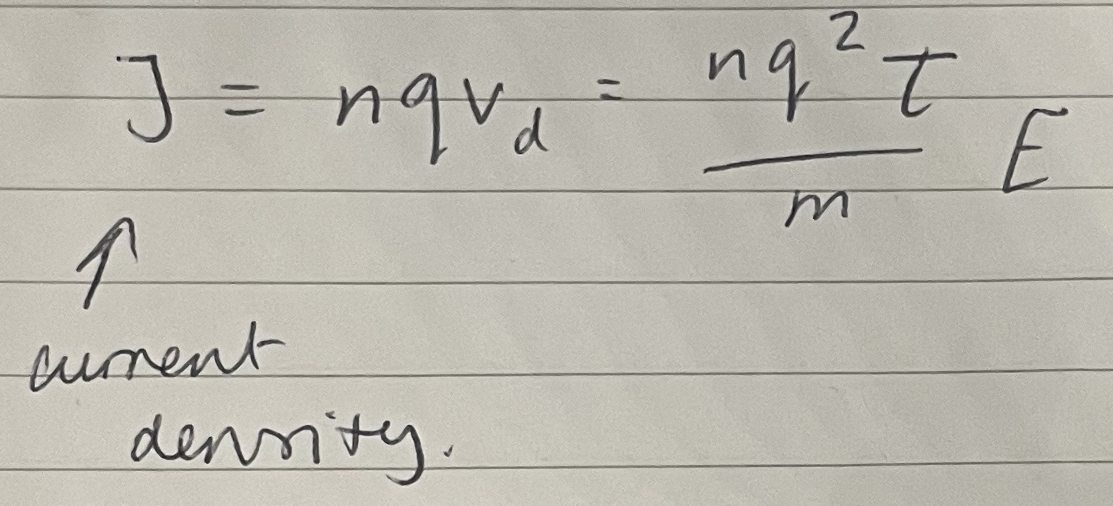 J = nqv_d = \frac{nq^2 τ}{m} E
↑
current
density.